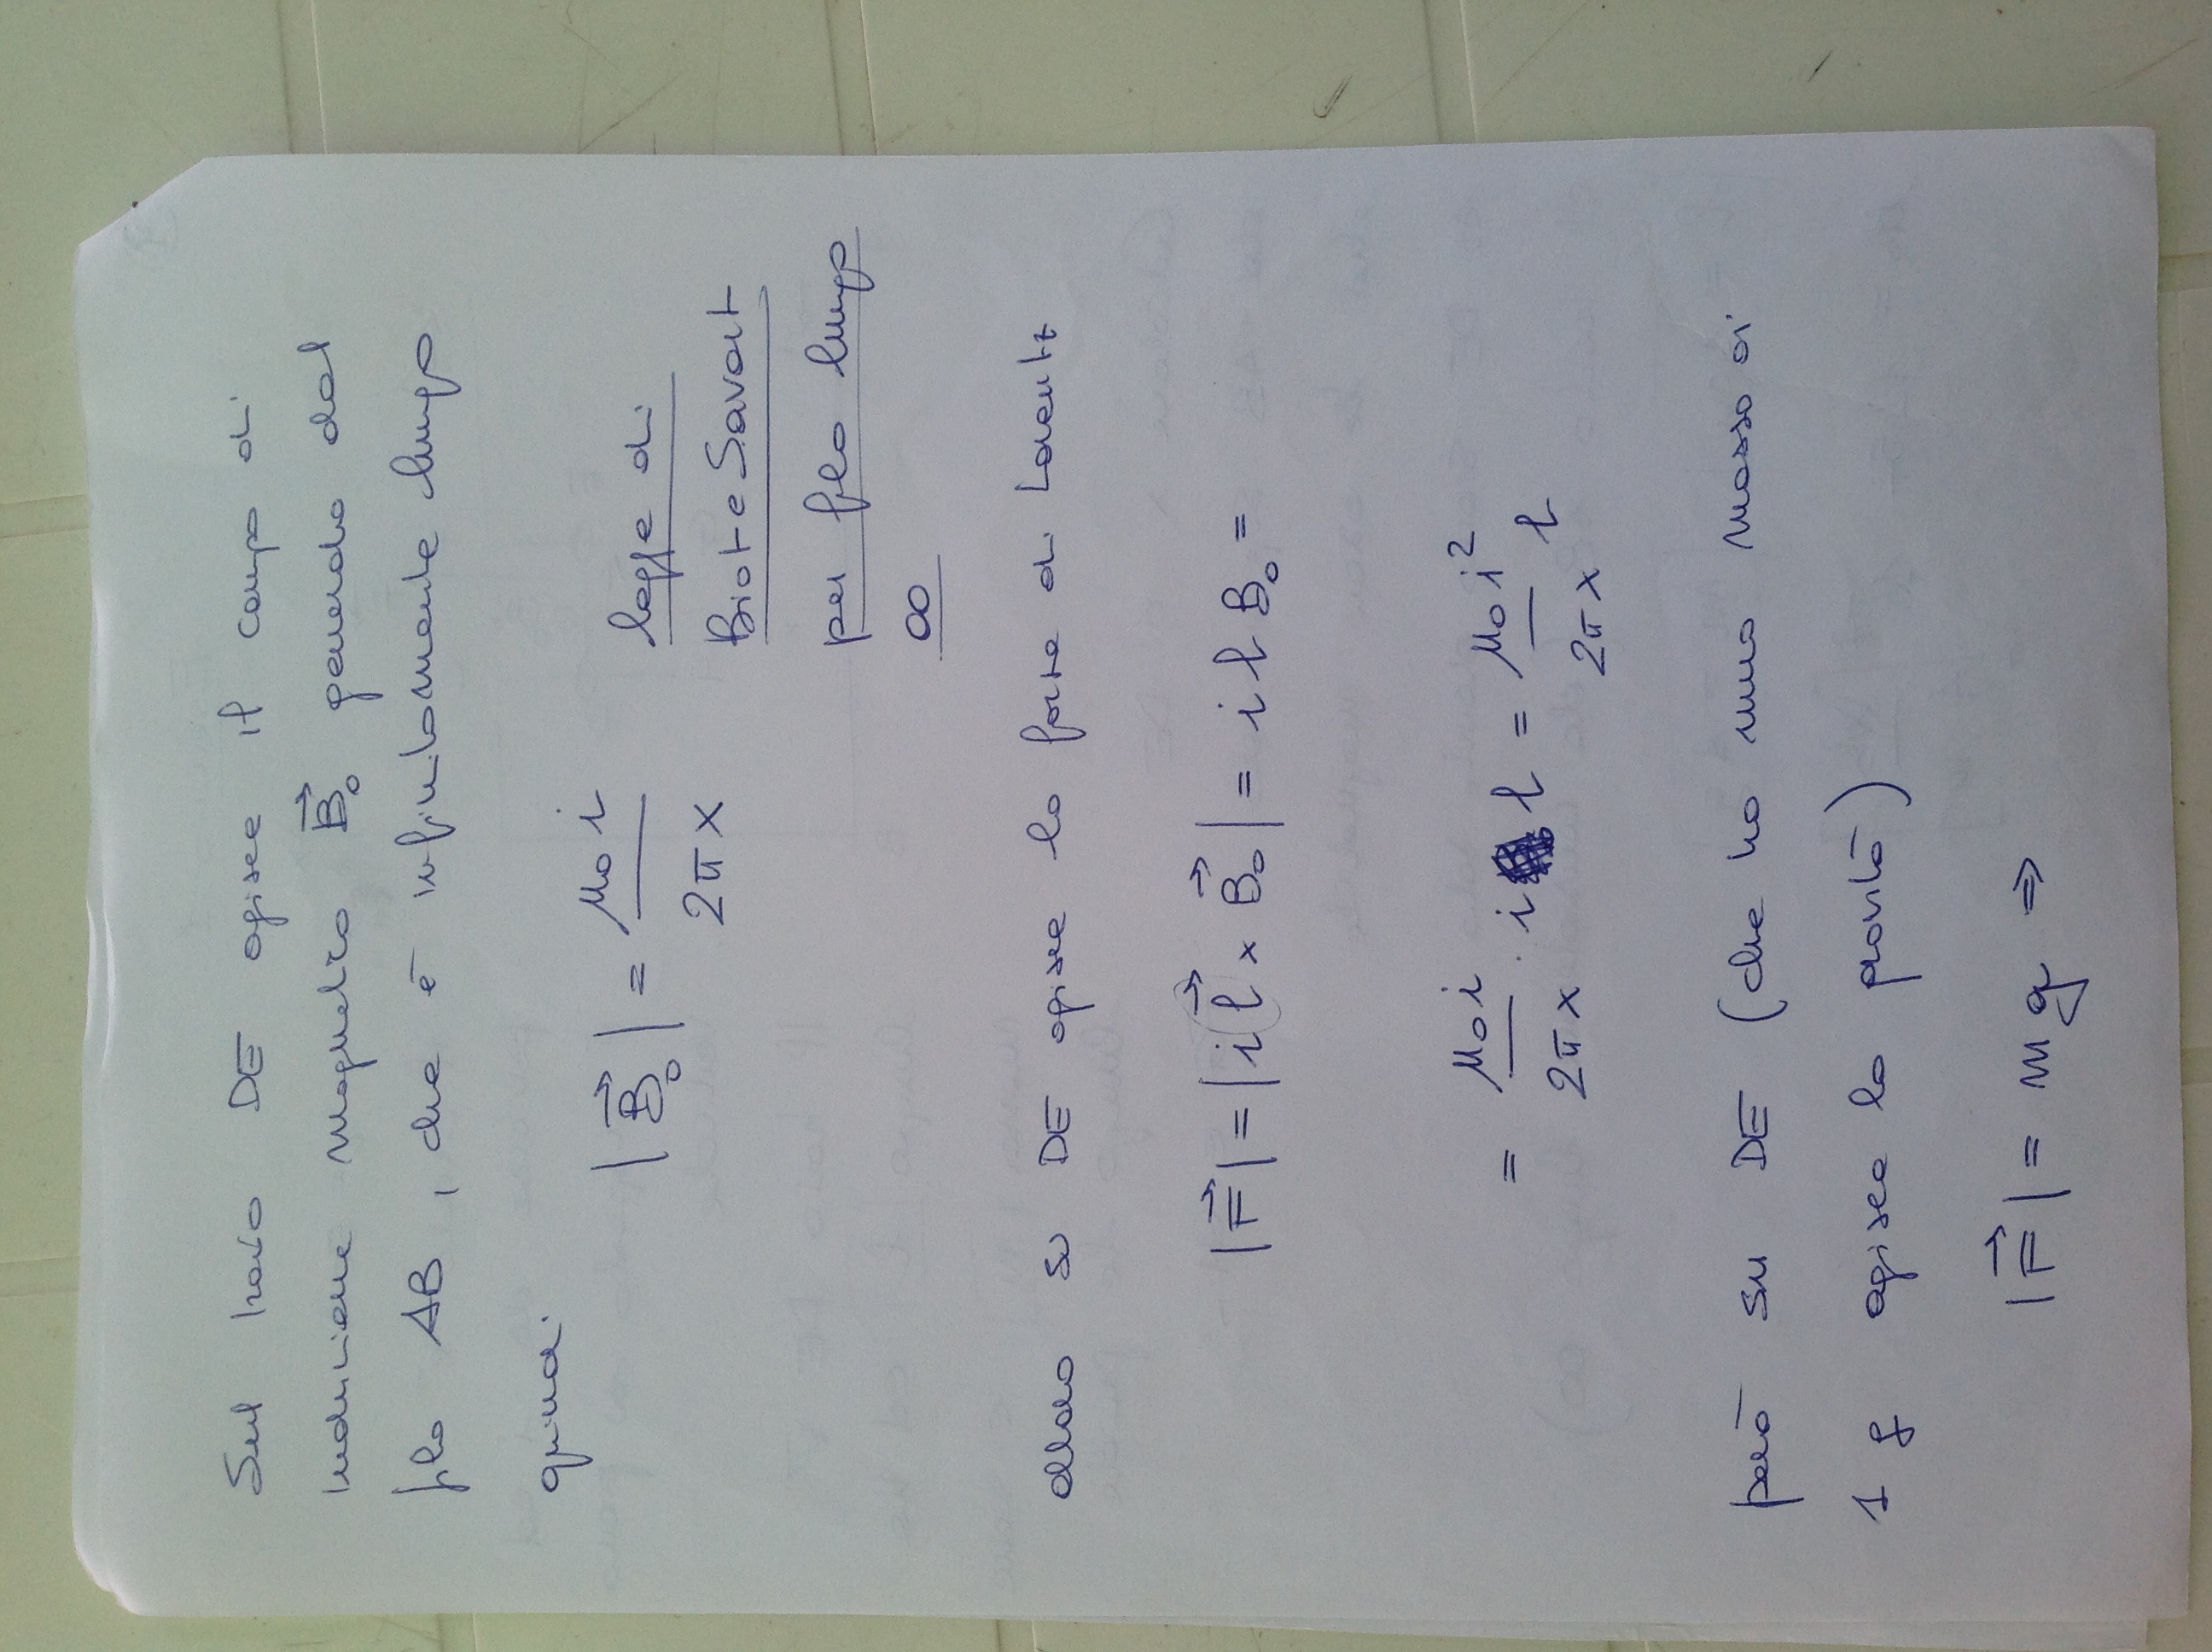 Sul tratto DE agisce il campo di
induzione magnetico B⃗₀ generato dal
filo AB, che è infinitamente lungo
quindi
|B⃗₀| = μ₀ i / 2π x
legge di
Biot e Savart
per filo lungo
∞
allora su DE agisce la forza di Lorentz
|F⃗| = |i l⃗ × B⃗₀| = i l B₀ =
= μ₀ i / 2π x · i l = μ₀ i² / 2π x l
però su DE (che ha una massa di
1 g agisce la gravità)
|F⃗| = mg ⇒